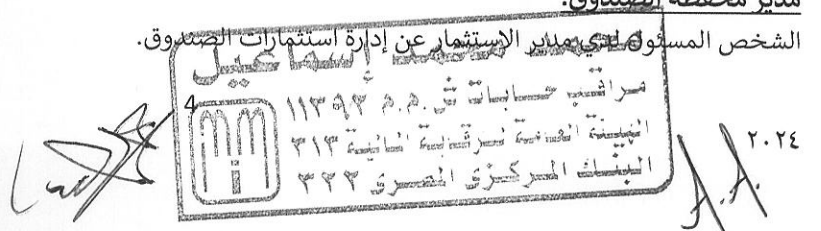 مدير محفظة الصندوق:
الشخص المسئول لدي مدير الإستثمار عن إدارة استثمارات الصندوق.
محمد محمد إسماعيل
مراقب حسابات س.م.م ١١٣٩٢
الهيئة العامة للرقابة المالية ٣١٣
البنك المركزى المصرى ٣٢٢
4
٢٠٢٤
A.A.